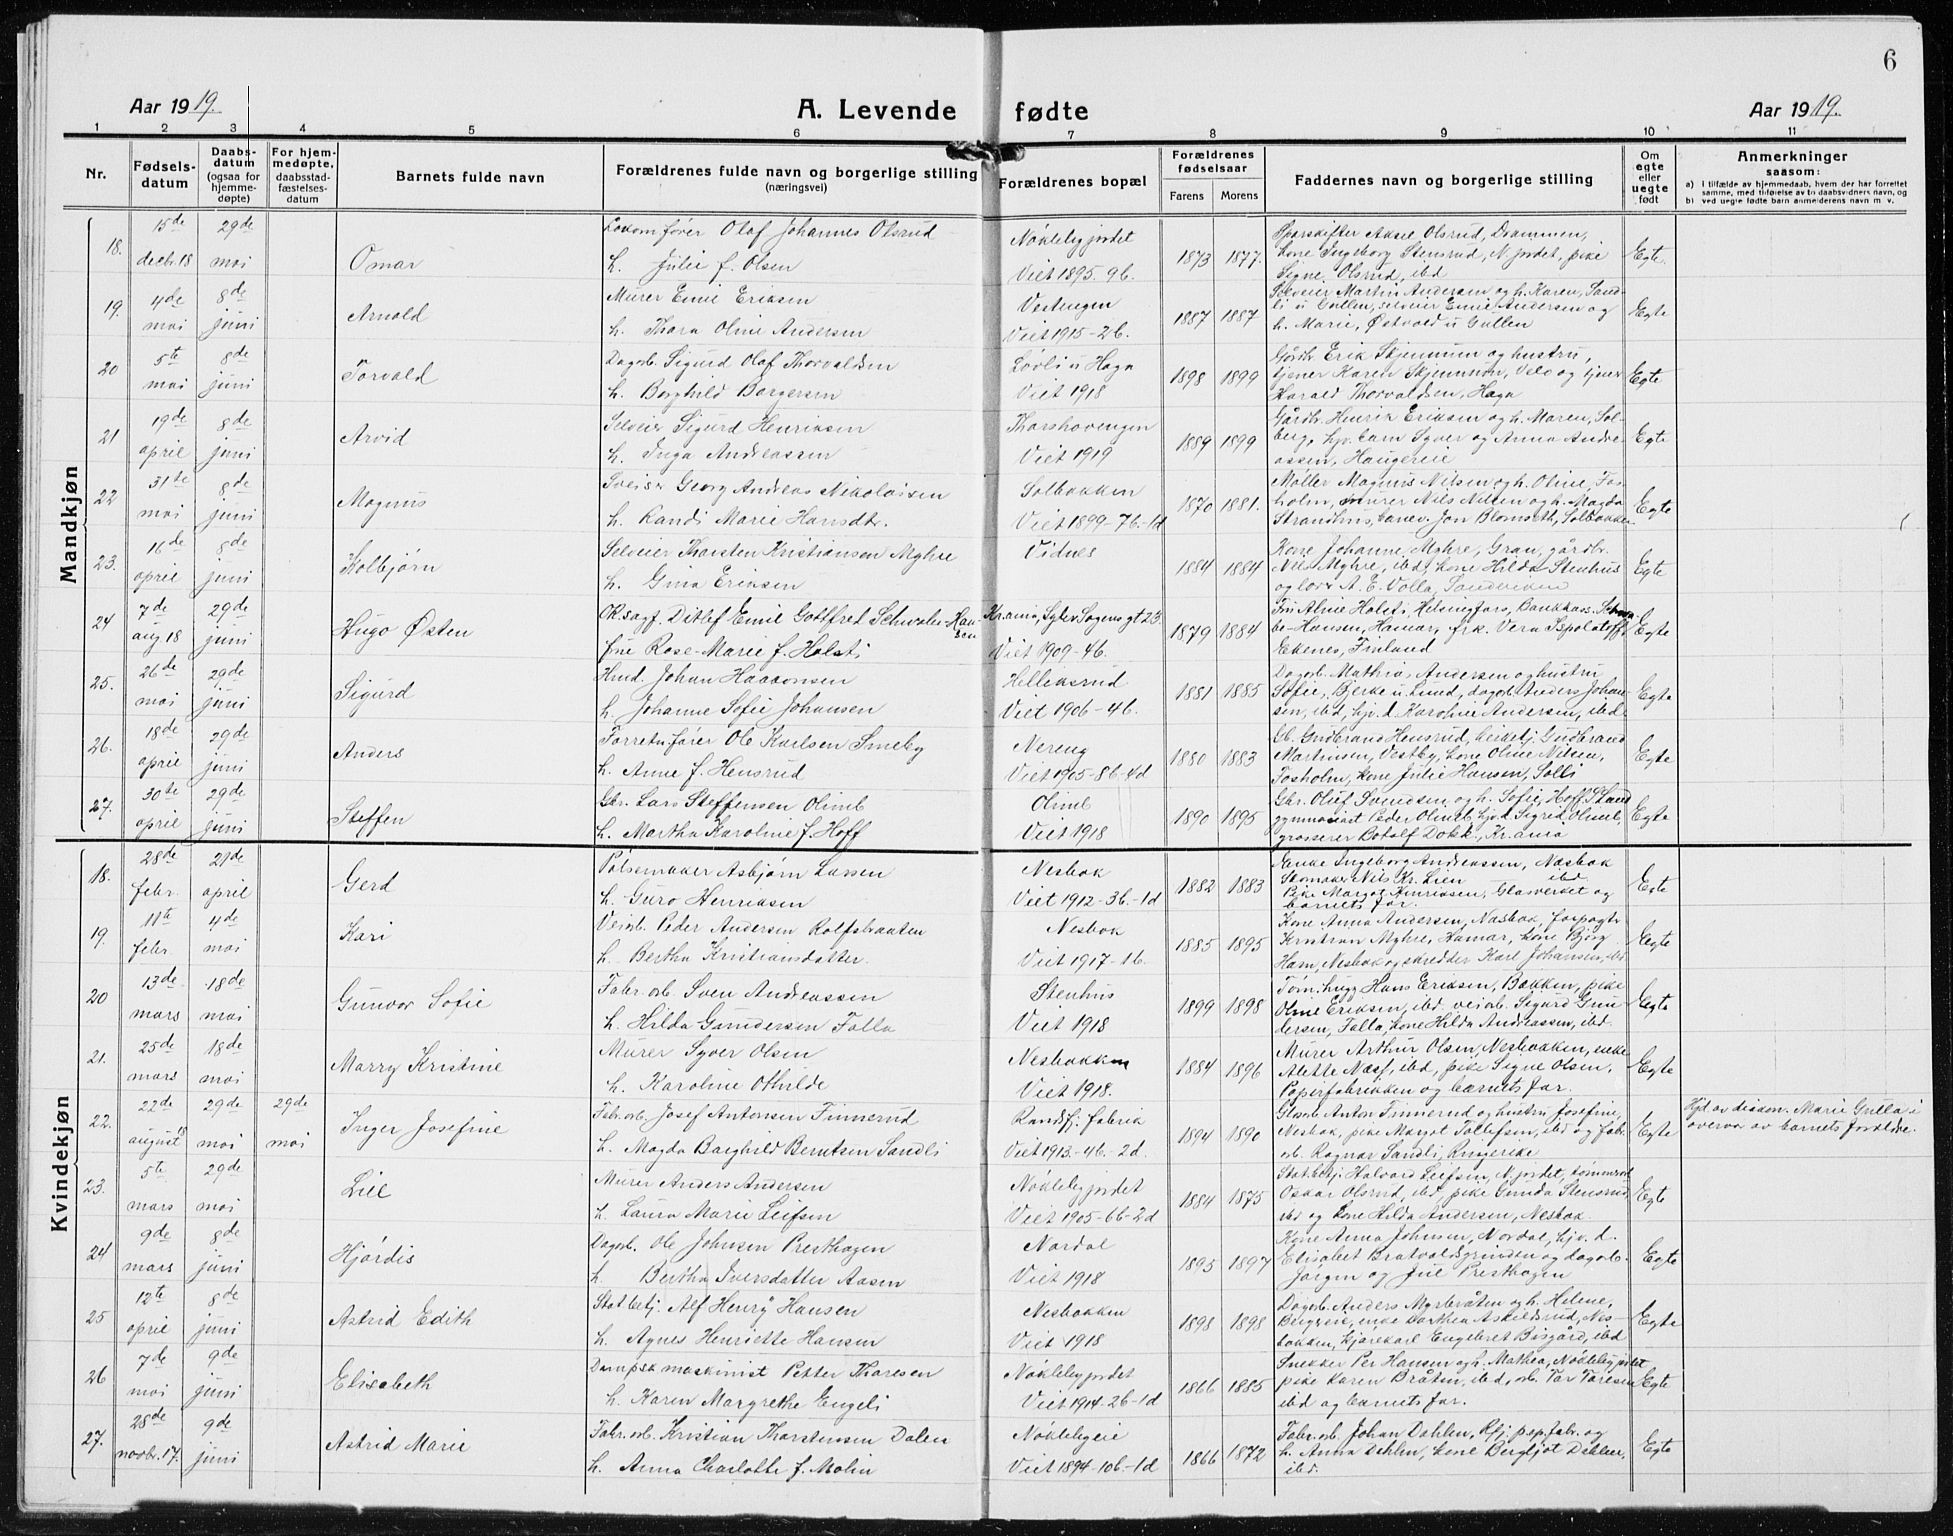 6
Aar 1919.
A. Levende fødte
Aar 1919.
1 2 3 4 5 6 7 8 9 10 11
Nr.
Fødselsdatum
Daabsdatum (ogsaa for hjemmedøpte)
For hjemmedøpte, daabsstadfæstelsesdatum
Barnets fulde navn
Forældrenes fulde navn og borgerlige stilling (næringsvei)
Forældrenes bopæl
Forældrenes fødselsaar
Farens Morens
Faddernes navn og borgerlige stilling
Om egte eller uegte født
Anmerkninger saasom:
a) i tilfælde av hjemmedaab, hvem der har forrettet samme, med tilføielse av to daabsvidners navn, og
b) ved uegte fødte barn anmelderens navn m. v.
Mandkjøn
18. 15de decbr. 18 29de mai Omar
Lokomfører Olaf Johannes Olsrud
h. Julie f. Olsen
Nøklebyjordet
Viet 1895-96.
1873 1877.
Sparskifter Aksel Olsrud, Drammen,
kone Ingeborg Stensrud, N. jordet, pike
Signe Olsrud, ibd
Egte.
19. 4de mai 8de juni Arnold
Murer Emil Eriksen
h. Thora Oline Andersen
Vestengen
Viet 1915-26.
1887 1887
Selveier Martin Andersen og h. Karen, Sandli u Gullen, selveier Emil Andersen og
h. Marie, Østvold u Gullen
Egte
20 5te mai 8de juni Torvald
Dagarb. Sigurd Olaf Thorvaldsen
h. Borghild Borgersen
Løvli u Haga
Viet 1918
1898 1899
Gårdbr. Erik Skjennum og hustru,
tjener Karen Skjennum, Velo og tjener
Harald Thorvaldsen, Haga
Egte
21 19de april 8de juni Arvid
Selveier Sigurd Henriksen
h. Inga Andreassen
Thorshovengen
Viet 1919
1889 1899
Gårdbr. Henrik Eriksen og h. Maren, Solberg, hjv. barn Syver og Anna Andreassen, Haugereie
Egte
22 31te mai 8de juni Magnus
Sveiser Georg Andreas Nikolaisen
h. Randi Marie Hansdtr.
Solbakken
Viet 1899-76-1d
1870 1881.
Møller Magnus Nilsen og h. Oline, Fosholm, murer Nils Nilsen og h. Magda
Strandhus, banev. Jon Blomseth, Solbakken
Egte
23. 16de april 8de juni Kolbjørn
Selveier Thorsten Kristiansen Myhre
h. Gina Eriksen
Vidnes
1884 1884
Kone Johanne Myhre, Gran, gårdbr.
Nils Myhre, ibd, kone Hilda Stenhus
og lærer A. E. Volla, Sandviken
Egte
24 7de aug. 18 29de juni Hugo Østen
O.r.sagf. Ditlef Emil Gottfred Schwabe-Hansen
fine Rose-Marie f. Holsti
Kr.ania, Sylev Sogens gt 23.
Viet 1909-46.
1879 1884
Fru Alnie Holsti, Helsingfors, Bankkass. Schwabe-Hansen, Hamar, frk. Vera Ispolatoff,
Ekenes, Finland
Egte
25. 26de mai 29de juni Sigurd
Hmd. Johan Haakonsen
h. Johanne Sofie Johansen
Helleksrud
Viet 1906-46.
1881 1885
Dagarb. Mathias Andersen og hustru
Sofie, Bjerke u. Lund, dagarb. Anders Johansen, ibd, hjv. d. Karoline Andersen, ibd
Egte
26. 18de april 29de juni Anders
Forretn.fører Ole Karlsen Smeby
h. Anne f. Hensrud
Nereng
Viet 1905-86-4d
1880 1883
Gb. Gudbrand Hensrud, Gudbrand
Martinsen, Vestby, kone Oline Nilsen,
Fosholm, kone Julie Hansen, Solli
Egte
27. 30te april 29de juni Steffen
Gbr. Lars Steffensen Olimb
h. Martha Karoline f. Hoff
Olimb
Viet 1918
1890 1895
Gbr. Oluf Svendsen og h. Sofie, Hoff S. Land
gymnasiast Peder Olimb, hjv. d. Sigrid Olimb,
grosserer Botolf Dokk, Kr.ania
Egte
Kvindekjøn
18. 28de febr. 21de april Gerd
Pølsemaker Asbjørn Larsen
h. Guro Henriksen
Nesbak
Viet 1912-36-1d
1882 1883
Enke Ingeborg Andreassen, Næsbak
Skomaker Nils Kr. Lien ibd.
Pike Margot Henriksen, Glasverket og
barnets far.
Egte
19. 11te febr. 4de mai Kari
Veiarb. Peder Andersen Rolfsbraaten
h. Bertha Kristiansdatter.
Nesbak
Viet 1917-16.
1885 1895
Kone Anna Andersen, Næsbak, forpagt.
Kristian Myhre, Hamar, kone Bjørg
Ham, Nesbak og skredder Karl Johansen, ibd
Egte
20 13de mars 18de mai Gunvor Sofie
Fabr.arb. Sven Andreassen
h. Hilda Gundersen Falla
Stenhus
Viet 1918
1899 1898
Tømrhugg Hans Eriksen, Bakken, pike
Oline Eriksen, ibd veiarb. Sigurd Gundersen, Falla, kone Hilda Andreassen, ibd.
Egte
21. 25de mars 18de mai Marry Kristine
Murer Syver Olsen
h. Karoline Othilde
Nesbakken
Viet 1918.
1884 1896
Murer Arthur Olsen, Nesbakken, enke
Alette Næss, ibd, pike Signe Olsen,
Papirfabrikken og barnets far.
Egte
22. 22de august 18 29de mai 29de mai Inger Josefine
Fabr.arb. Josef Antonsen Finnerud
h. Magda Borghild Berntsen Sandli
Randsfj. Fabrik
Viet 1913-46-2d.
1894 1890
Glasarb Anton Finnerud og hustru Josefine,
Nesbak, pike Margot Tollefsen, ibd og fabr.arb. Ragnar Sandli, Ringerike
Egte
Hjd. av diakon. Marie Gulla i
overvær av barnets forældre.
23. 5te mars 29de mai Lill
Murer Anders Andersen
h. Laura Marie Leifsen
Nøklebyjordet
Viet 1905-66-2d
1884 1875
Statbetj. Halvard Leifsen, N. jordet, tømmrarb
Oskar Olsrud, ibd, pike Gunda Stensrud,
ibd og kone Hilda Andersen, Nesbak.
Egte
24 9de mars 8de juni Hjørdis
Dagarb. Ole Johnsen Presthagen
h. Bertha Iversdatter Aasen
Nordal
Viet 1918
1895 1897
Kone Anna Johnsen, Nordal, hjv. d.
Elisabet Bratvoldsgrinden og dagarb.
Jørgen og Jul Presthagen
Egte
25 12te april 8de juni Astrid Edith
Statbetj. Alf Henry Hansen
h. Agnes Henriette Hansen
Nesbakken
Viet 1918
1898 1898
Dagarb. Anders Myrbråten og h. Helene,
Bergseie, enke Dorthea Askildsrud, Nesbakken, kjørekarl Engebret Bisgård, ibd
Egte
26 7de mai 9de juni Elisabeth
Dampsk maskinist Petter Thoresen
h. Karen Margrethe Engeli
Nøklebyjordet
Viet 1914-26-1d
1866 1885
Snekker Per Hansen og h. Mathea, Nøklebyjordet
pike Karen Bråten, ibd, arb. Tor Toresen
ibd og barnets far.
Egte
27. 28de novbr. 17. 9de juni Astrid Marie
Fabr.arb. Kristian Thorstensen Dalen
h. Anna Charlotte f. Molin
Nøklebyeie
Viet 1894-106-1d
1866 1872
Fabr.arb. Johan Dahlen, Rfj. pap.fabr. og
h. Anna Dahlen, kone Bergljot Dahlen,
ibd.
Egte